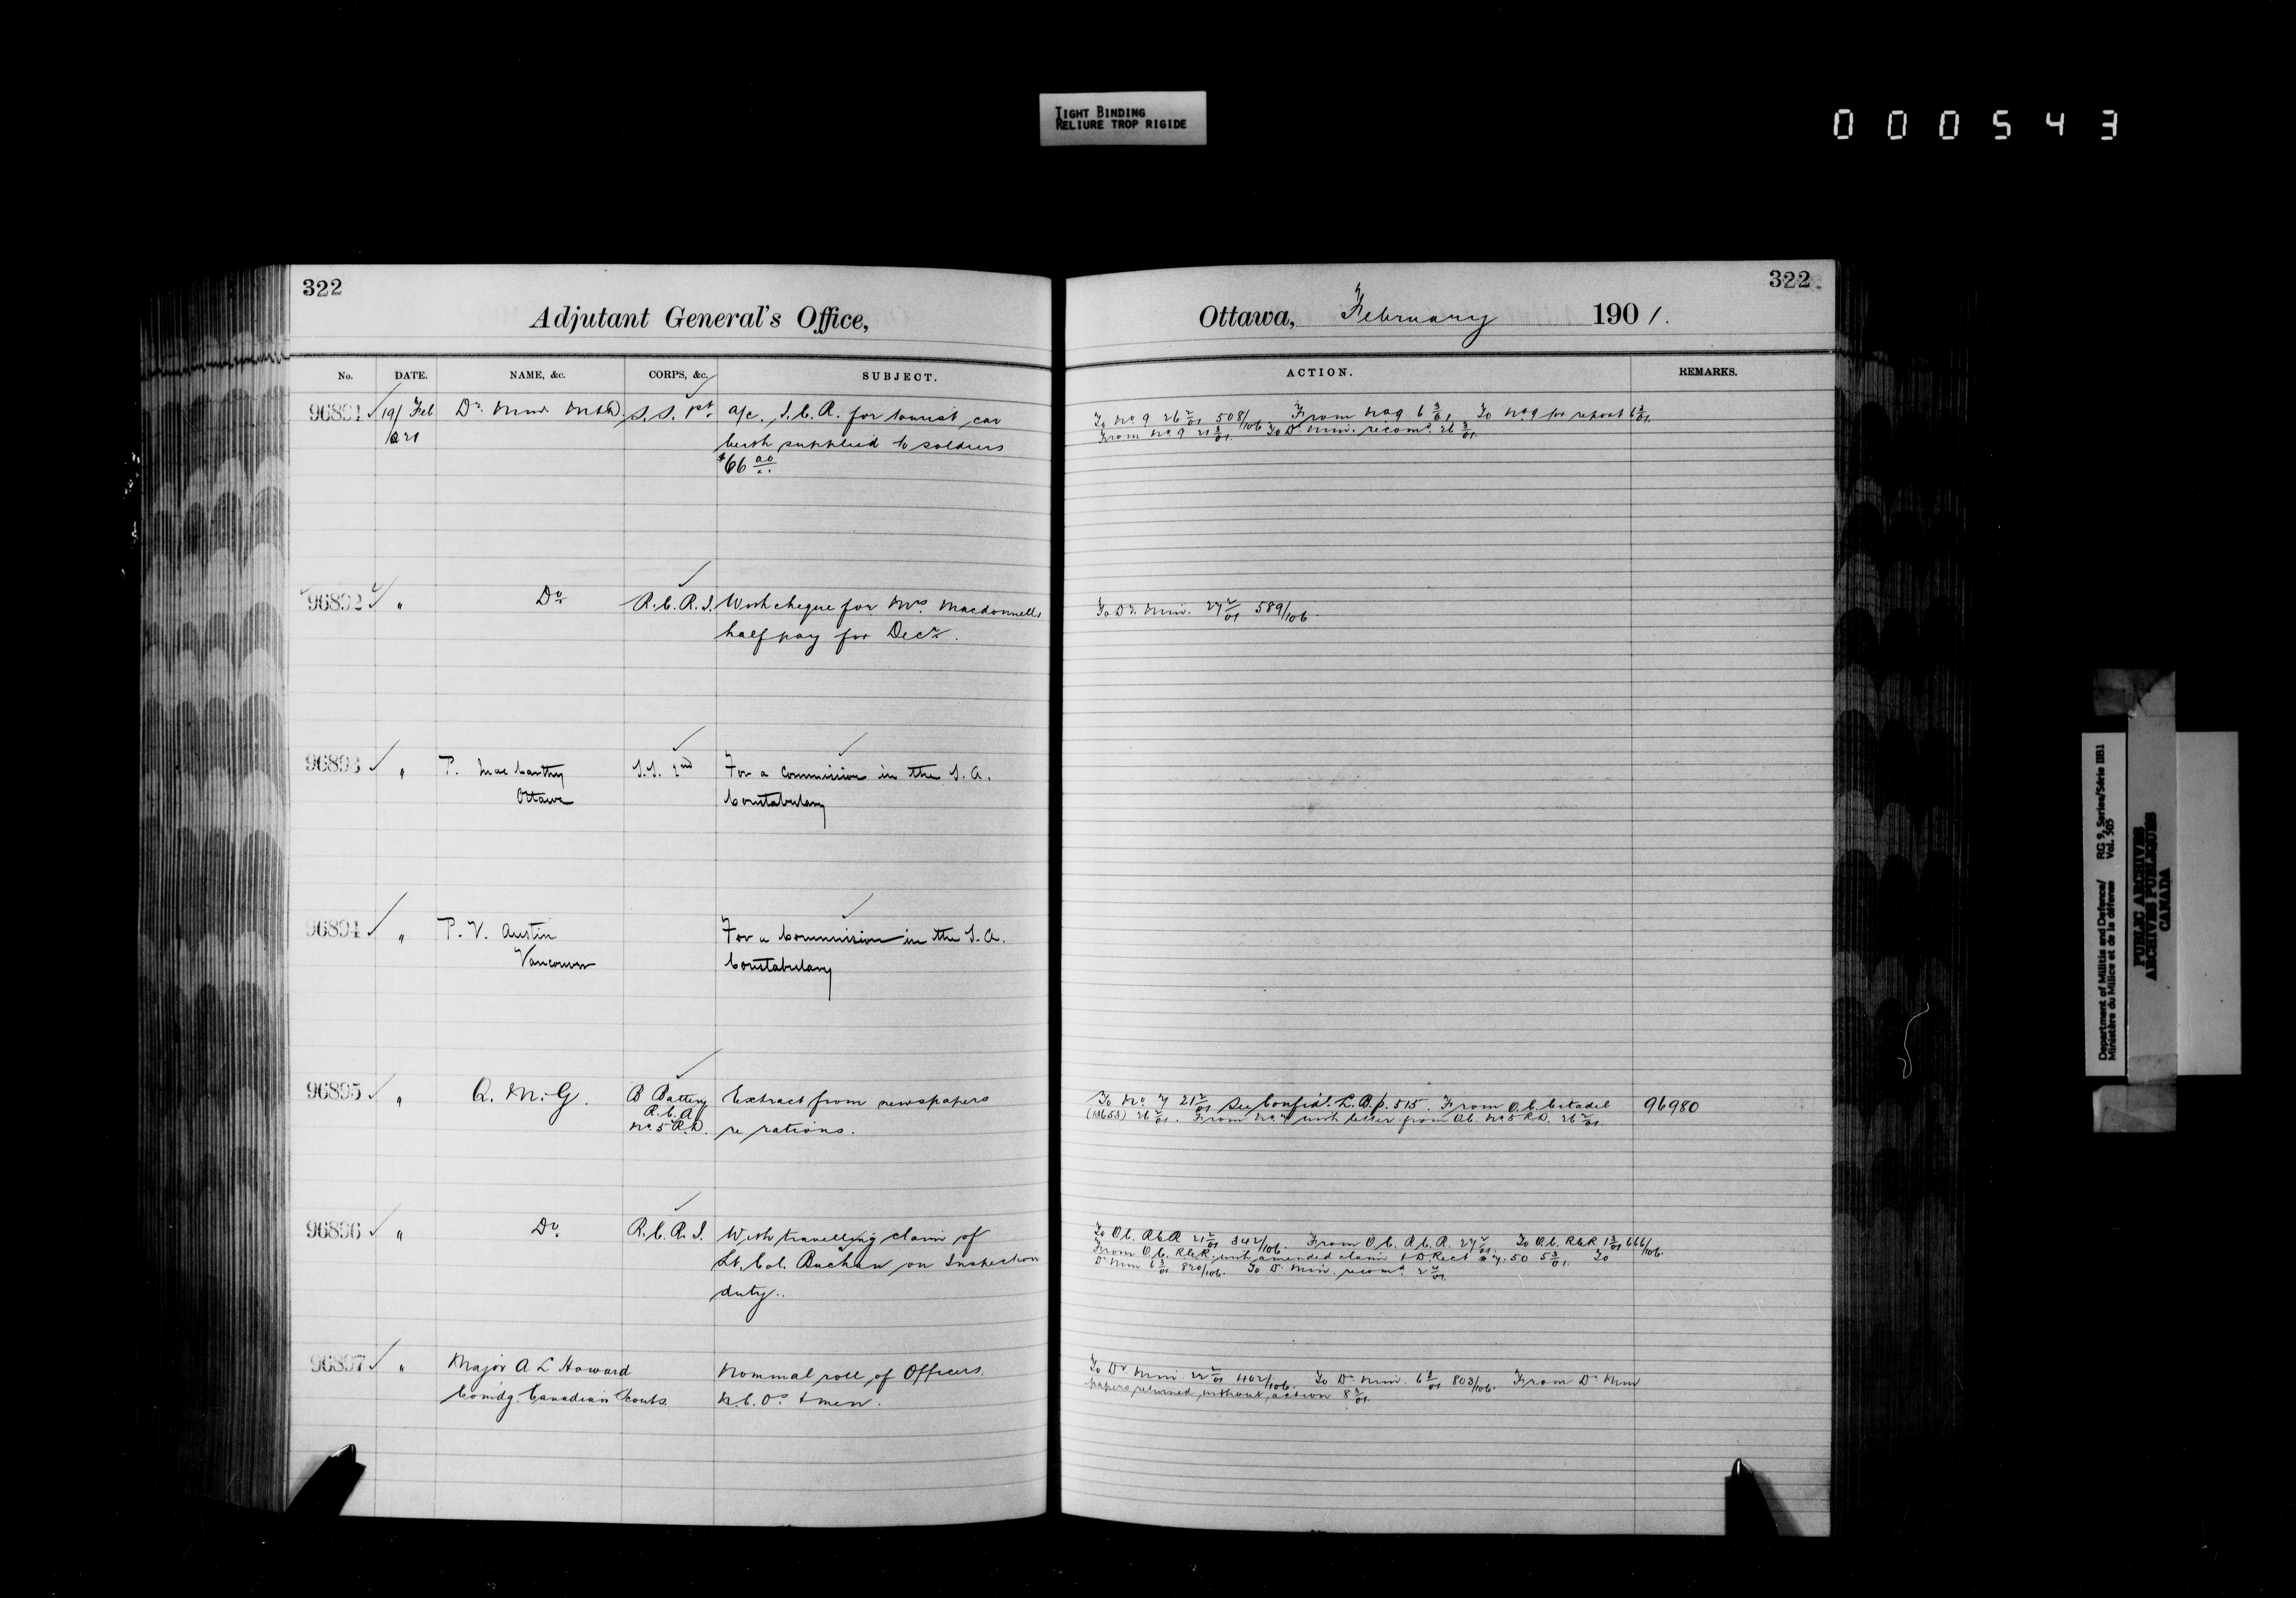 TIGHT BINDING
RELIURE TROP RIGIDE
000543
322
Adjutant General's Office,
No. DATE. NAME, &c. CORPS, &c. SUBJECT.
96891 19/Feb Dr. Min. M&D. S.S. Pt. a/c. I.C.R. for tourist car
berth supplied to soldiers
$66
96892 " Do R.C.R.I. With cheque for Mrs. Macdonnell's
half pay for Decr.
96893 " P. MacCarthy S.S. 2nd For a commission in the S.A.
Ottawa Constabulary
96894 " P. V. Austin For a Commission in the S.A.
Vancouver Constabulary
96895 " Q.M.G. B Battery Extract from newspapers
R.C.A.
No. 5 R.D. re rations.
96896 " Do. R.C.R.I. With travelling claim of
Lt. Col. Buchan on Inspection
duty.
96897 " Major A L Howard Nominal roll of Officers,
Comdg. Canadian Scouts. N.C.Os. + men.
322
Ottawa, February 1901.
ACTION. REMARKS.
To No. 9 26 2/01 508/106 From No 9 6 3/01 To No. 9 for report 6 3/01
From No. 9 21 3/01. To Dr. Min. recomd. 26 3/01.
To Dr. Min. 27 2/01 589/106.
To No. 7 21 2/01 See Confidl. L.B. p. 515. From O.C. Citadel 96980
26 2/01. From No. 7 with letter from O.C. No 5 R.D. 26 2/01
To O.C. RCR 21 2/01 342/106. From O.C. R.C.R. 27 2/01. To O.C. RCR 1 3/01 666/106.
From O.C. RCR. with amended claim + D Rect 50 5 3/01. To
Dr Min 6 3/01 820/106. To Dr. Min. recomd.
To Dr Min 22 2/01 402/106. To Dr. Min. 6 3/01 803/106. From Dr. Min
papers returned without action 8 3/01.
Department of Militia and Defence/ RG 9, Series/Série IIB1
Ministère du Milice et de la défense Vol. 505
PUBLIC ARCHIVES
ARCHIVES PUBLIQUES
CANADA